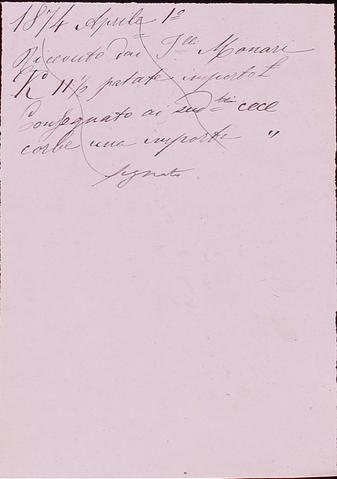 1874 Aprile 1º
Ricevuto dai Flli Monari
Kº 11½ patate importo L
Consegnato ai sudti cece
corbe una importa "
Segnato